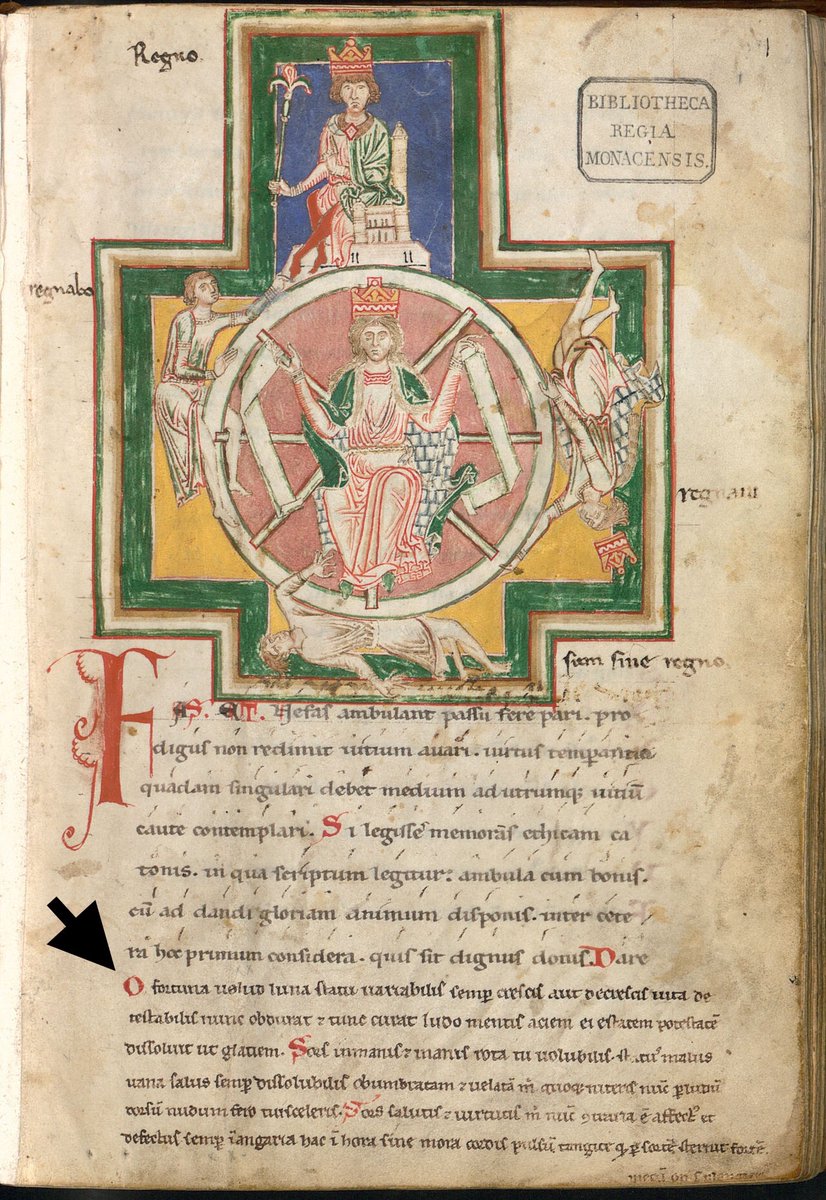 Regno.
1
BIBLIOTHECA
REGIA
MONACENSIS.
regnabo
regnaui
sum sine regno.
FAS. ET. Nefas ambulant passu fere pari. pro
digus non redimit uitium auari. uirtus temperantia
quadam singulari debet medium ad utrumq; uitiū
caute contemplari. Si legisse memoras ethicam ca
tonis. in qua scriptum legitur: ambula cum bonis.
cū ad dandi gloriam animum disponis. inter cete
ra hoc primum considera. quis sit dignus donis. Dare
O fortuna uelud luna statu uariabilis semp crescis aut decrescis uita de
testabilis nunc obdurat ⁊ tunc curat ludo mentis aciem egestatem potestatē
dissoluit ut glatiem. Sors inmanis ⁊ inanis rota tu uolubilis. statꝰ malus
uana salus semp dissolubilis obumbratam ⁊ uelatā m quoq; niteris nūc p ludū
dorsū nudum fero tui sceleris. Sors salutis ⁊ uirtutis m nūc ꝯtraria ē affectꝰ et
defectus semp ī angaria hac ī hora sine mora cordis pulsū tangite q p sortē sternit fortē